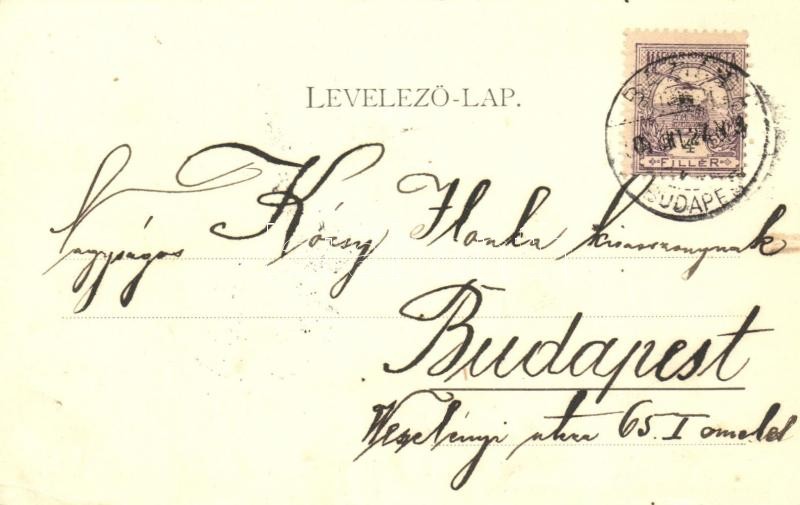 LEVELEZŐ-LAP.
MAGYAR KIR. POSTA
FILLÉR
BUDAPEST
Nagyságos Kócsy Ilonka kisasszonynak
Budapest
Wesselényi utcza 65. I emelet